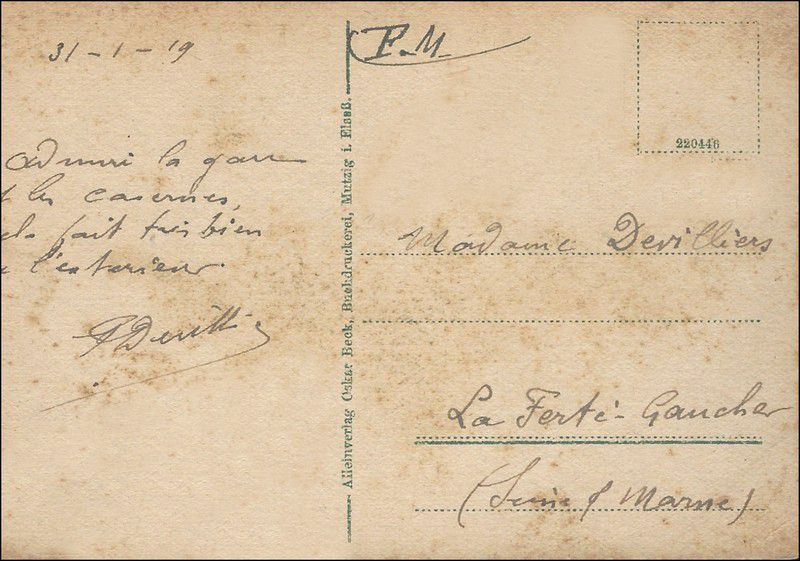 31-1-19
F.M.
admiré la gare
les casernes,
fait très bien
l'extérieur.
Alleinverlag Oskar Beck, Buchdruckerei, Mutzig i. Elsaß.
220446
Madame Devilliers
La Ferté-Gaucher
(Seine & Marne)